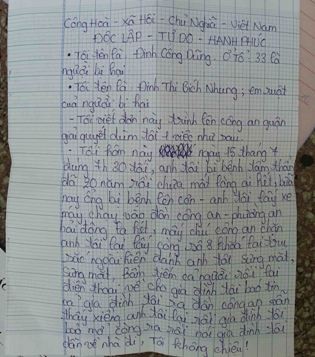 Công Hoà - Xã Hội - Chủ Nghĩa - Việt Nam
ĐỘC LẬP - TỰ DO - HẠNH PHÚC
• Tôi tên là: Đinh Công Dũng. Ở Tổ: 33 là
người bị hại
• Tôi tên là: Đinh Thị Bích Nhung; em ruột
của người bị hại
- Tôi viết đơn này trình lên công an quận
giải quyết dùm tôi 1 việc như sau.
- Tối hôm này ngày 15 tháng 7
đúng 7h 30 tối, anh tôi bị bệnh tâm thần
đã 20 năm rồi chưa mất lòng ai hết, bữa
nay ông bị bệnh lên cơn - anh tôi lấy xe
máy chạy vào đồn công an - phường an
hải đông la hét, mấy chú công an chặn
anh tôi lại lấy còng số 8 khóa tại trụ
sắt ngoài hiên đánh anh tôi sưng mắt,
sưng mặt, bầm tiếm cả người rồi lại
điện thoại về cho gia đình tôi báo tin
cả gia đình tôi ra đồn công an vẫn
thấy xiềng anh tôi lại rồi gia đình tôi
bảo mở còng ra rồi nói gia đình tôi
dẫn về nhà đi, Tôi không chiệu!